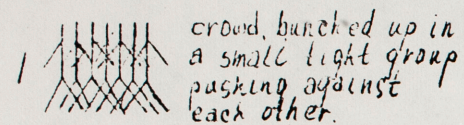 crowd, bunched up in
a small tight group
pushing against
each other.